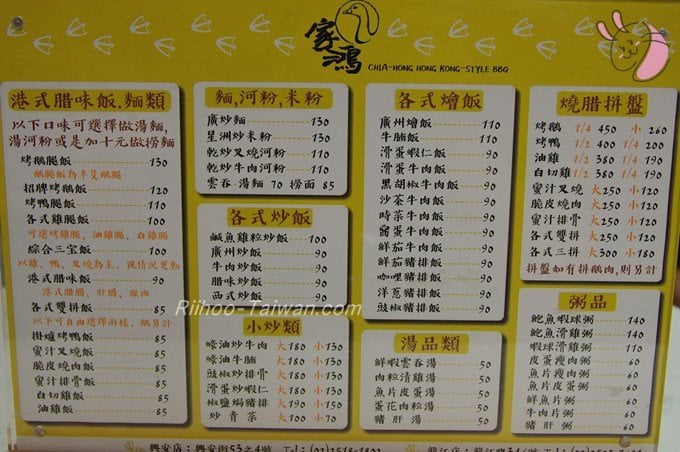 家鴻
CHIA-HONG HONG KONG-STYLE BBQ
港式腊味飯.麵類
以下口味可選擇做湯麵,
湯河粉或是加十元做撈麵
烤鵝腿飯 130
鵝腿飯為半隻鵝腿
招牌烤鵝飯 120
烤鴨腿飯 110
各式雞腿飯 100
可選烤雞腿、油雞腿、白雞腿
綜合三宝飯 100
以雞、鴨、叉燒為主、視情況更動
港式腊味飯 90
港式腊腸、肝腸、臘肉
各式雙拼飯 85
以下可自由選擇兩樣,鵝另計
掛爐烤鴨飯 85
蜜汁叉燒飯 85
脆皮燒肉飯 85
蜜汁排骨飯 85
白切雞飯 85
油雞飯 85
麵,河粉,米粉
廣炒麵 130
星洲炒米粉 130
乾炒叉燒河粉 110
乾炒牛肉河粉 110
雲吞 湯麵 70 撈面 85
各式炒飯
鹹魚雞粒炒飯 100
廣州炒飯 90
牛肉炒飯 90
腊味炒飯 90
西式炒飯 90
小炒類
蠔油炒牛肉 大180 小130
蠔油牛腩 大180 小130
豉椒炒排骨 大180 小130
滑蛋炒蝦仁 大180 小130
椒鹽焗豬排 大190 小150
炒青菜 大100 小70
各式燴飯
廣州燴飯 110
牛腩飯 110
滑蛋蝦仁飯 90
滑蛋牛肉飯 90
黑胡椒牛肉飯 90
沙茶牛肉飯 90
時菜牛肉飯 90
窩蛋牛肉飯 90
鮮茄牛肉飯 90
鮮茄豬排飯 90
咖哩豬排飯 90
洋蔥豬排飯 90
豉椒豬排飯 90
湯品類
鮮蝦雲吞湯 50
肉粒清雞湯 50
魚片皮蛋湯 50
蛋花肉粒湯 50
豬肝湯 50
燒腊拼盤
烤鵝 1/4 450 小 260
烤鴨 1/2 400 1/4 200
油雞 1/2 380 1/4 190
白切雞 1/2 380 1/4 190
蜜汁叉燒 大250 小120
脆皮燒肉 大250 小120
蜜汁排骨 大250 小120
各式雙拼 大250 小120
各式三拼 大300 小180
拼盤如有拼鵝肉,則另計
粥品
鮑魚蝦球粥 140
鮑魚滑雞粥 140
蝦球滑雞粥 110
皮蛋瘦肉粥 60
魚片瘦肉粥 60
魚片皮蛋粥 60
鮮魚片粥 60
牛肉片粥 60
豬肝粥 60
Riihoo-Taiwan.com
興安店：興安街53之4號 Tel：(02)2518-1802